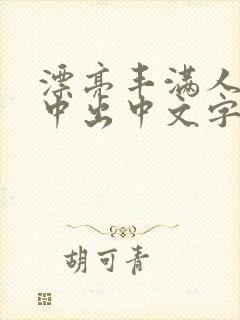 漂亮丰满人
中出中文字
胡可青